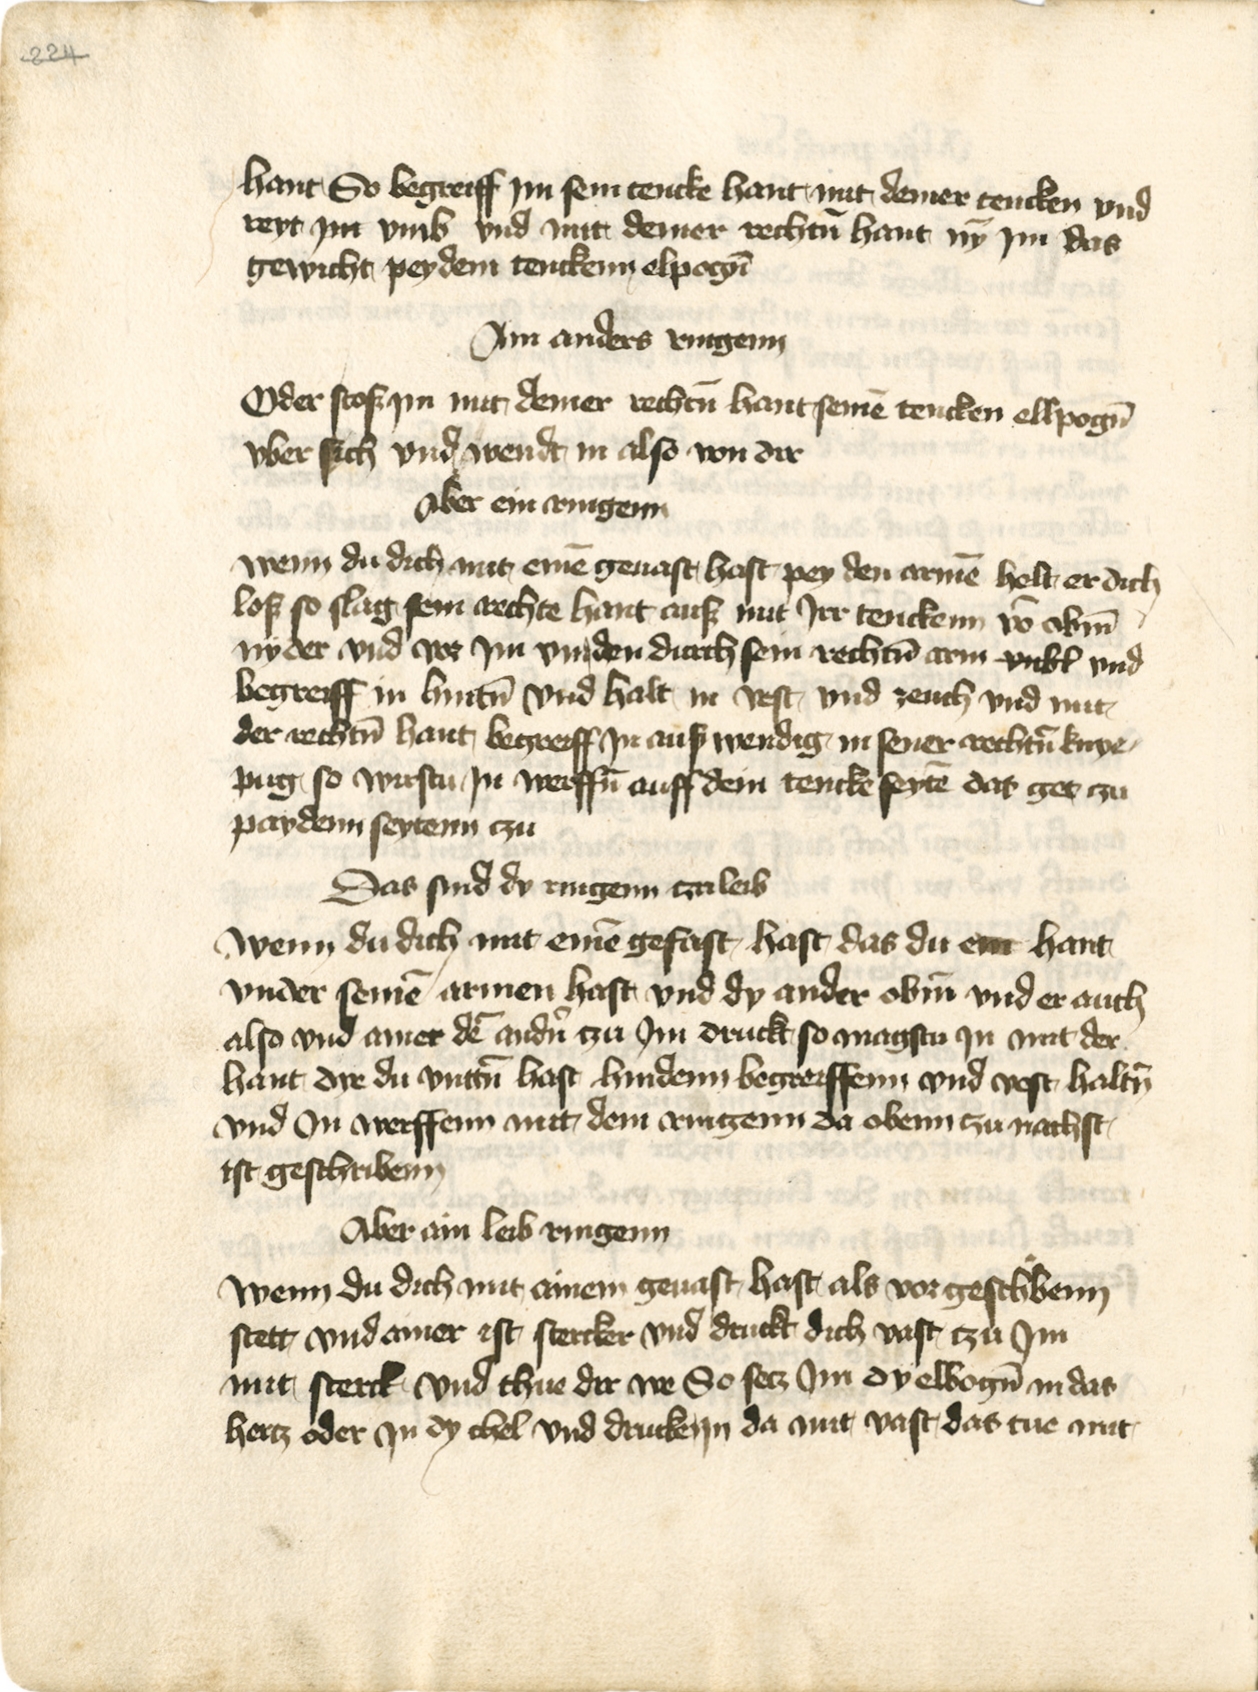 224
hant So begreiff Im sein tencke hant mit deiner tencken vnd
reyt im vmb vnd mit deiner rechtn̄ hant nȳ Im das
gewicht pey dem tenckenn elpogn̄
Ain anders ringenn
Oder stoß im mit deiner rechtn̄ hant seinē tencken ellpogn̄
vber sich vnd wendt in also von dir
Aber ein ringenn
wenn du dich mit einē geuast hast pey den armē helt er dich
loß so slag sein rechte hant auß mit Irr tenckenn vō obm̄
nyder vnd var Im vnnden durch sein rechtn̄ arm vnd
begreiff in hintn̄ vnd halt in vest vnd zeuch vnd mit
der rechtn̄ hant begreiff In auß wendig in seiner rechtn̄ knye
pug so wirstu In werffn̄ auff dein tencke seytē das get czu
paydenn seytenn czu
Das sind dy ringenn czu leib
Wenn du dich mit einē gefast hast das du ein hant
vnder seinē armen hast vnd dy ander obm̄ vnd er auch
also vnd ainer dē andn̄ czu Im druckt so magstu In mit der
hant dye du vntn̄ hast hindenn begreiffenn vnd vest haltn̄
vnd In werffenn mit dem ringenn da obenn czu nachst
ist geschribenn
Aber ain leib ringenn
Wenn du dich mit ainem geuast hast als vor geschibenn
stett vnd ainer ist stercker vnd druckt dich vast czu Im
mit sterck vnd thue dir we So secz Im dy elbogn̄ in das
hertz oder In dy chel vnd druck in da mit vast das tue mit